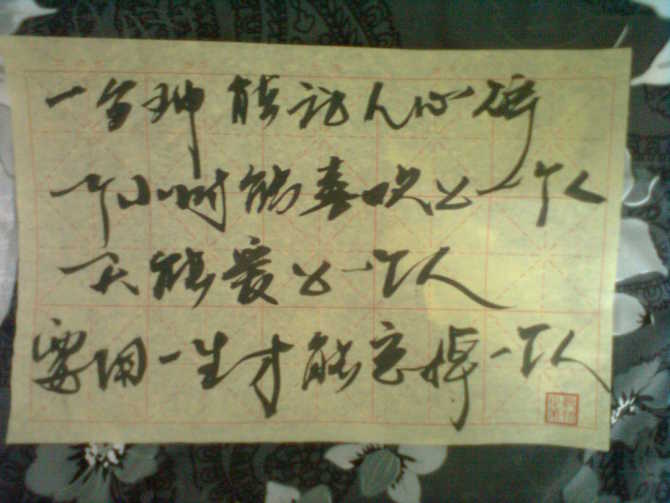 一分钟能让人心碎
一个小时能喜欢上一个人
一天能爱上一个人
要用一生才能忘掉一个人